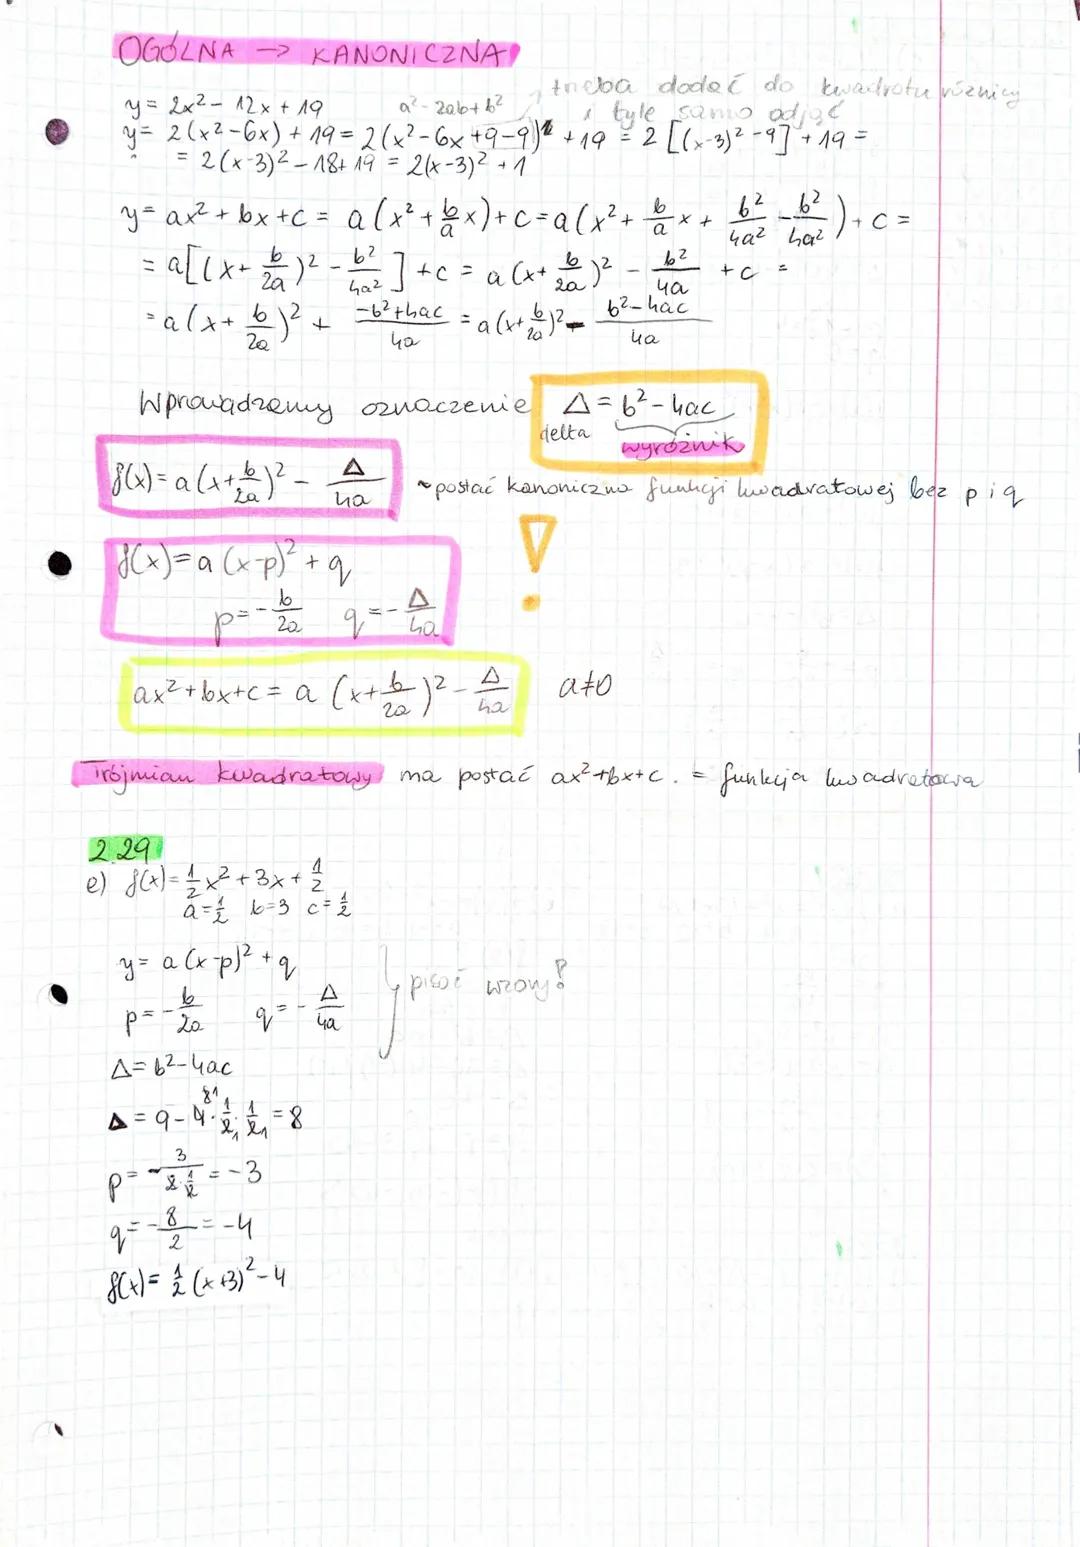 OGÓLNA → KANONICZNA
trzeba dodać do kwadratu różnicy
i tyle samo odjąć
y = 2x² - 12x + 19 a² - 2ab + b²
y = 2(x² - 6x) + 19 = 2(x² - 6x + 9 - 9) + 19 = 2[(x-3)² - 9] + 19 =
= 2(x-3)² - 18 + 19 = 2(x-3)² + 1
y = ax² + bx + c = a(x² + b/a x) + c = a(x² + b/a x + b²/4a² - b²/4a²) + c =
= a[(x + b/2a)² - b²/4a²] + c = a(x + b/2a)² - b²/4a + c =
= a(x + b/2a)² + -b²+4ac/4a = a(x + b/2a)² - b²-4ac/4a
Wprowadzamy oznaczenie Δ = b² - 4ac
delta wyróżnik
f(x) = a(x + b/2a)² - Δ/4a ~ postać kanoniczna funkcji kwadratowej bez p i q
f(x) = a(x-p)² + q !
p = -b/2a q = -Δ/4a
ax² + bx + c = a(x + b/2a)² - Δ/4a a≠0
Trójmian kwadratowy ma postać ax²+bx+c. = funkcja kwadratowa
2.29
e) f(x) = 1/2 x² + 3x + 1/2
a = 1/2 b = 3 c = 1/2
y = a(x-p)² + q
pisać wzory!
p = -b/2a q = -Δ/4a
Δ = b² - 4ac
Δ = 9 - 4 · 1/2 · 1/2 = 8
p = -3/2·1/2 = -3
q = -8/2 = -4
f(x) = 1/2 (x+3)² - 4